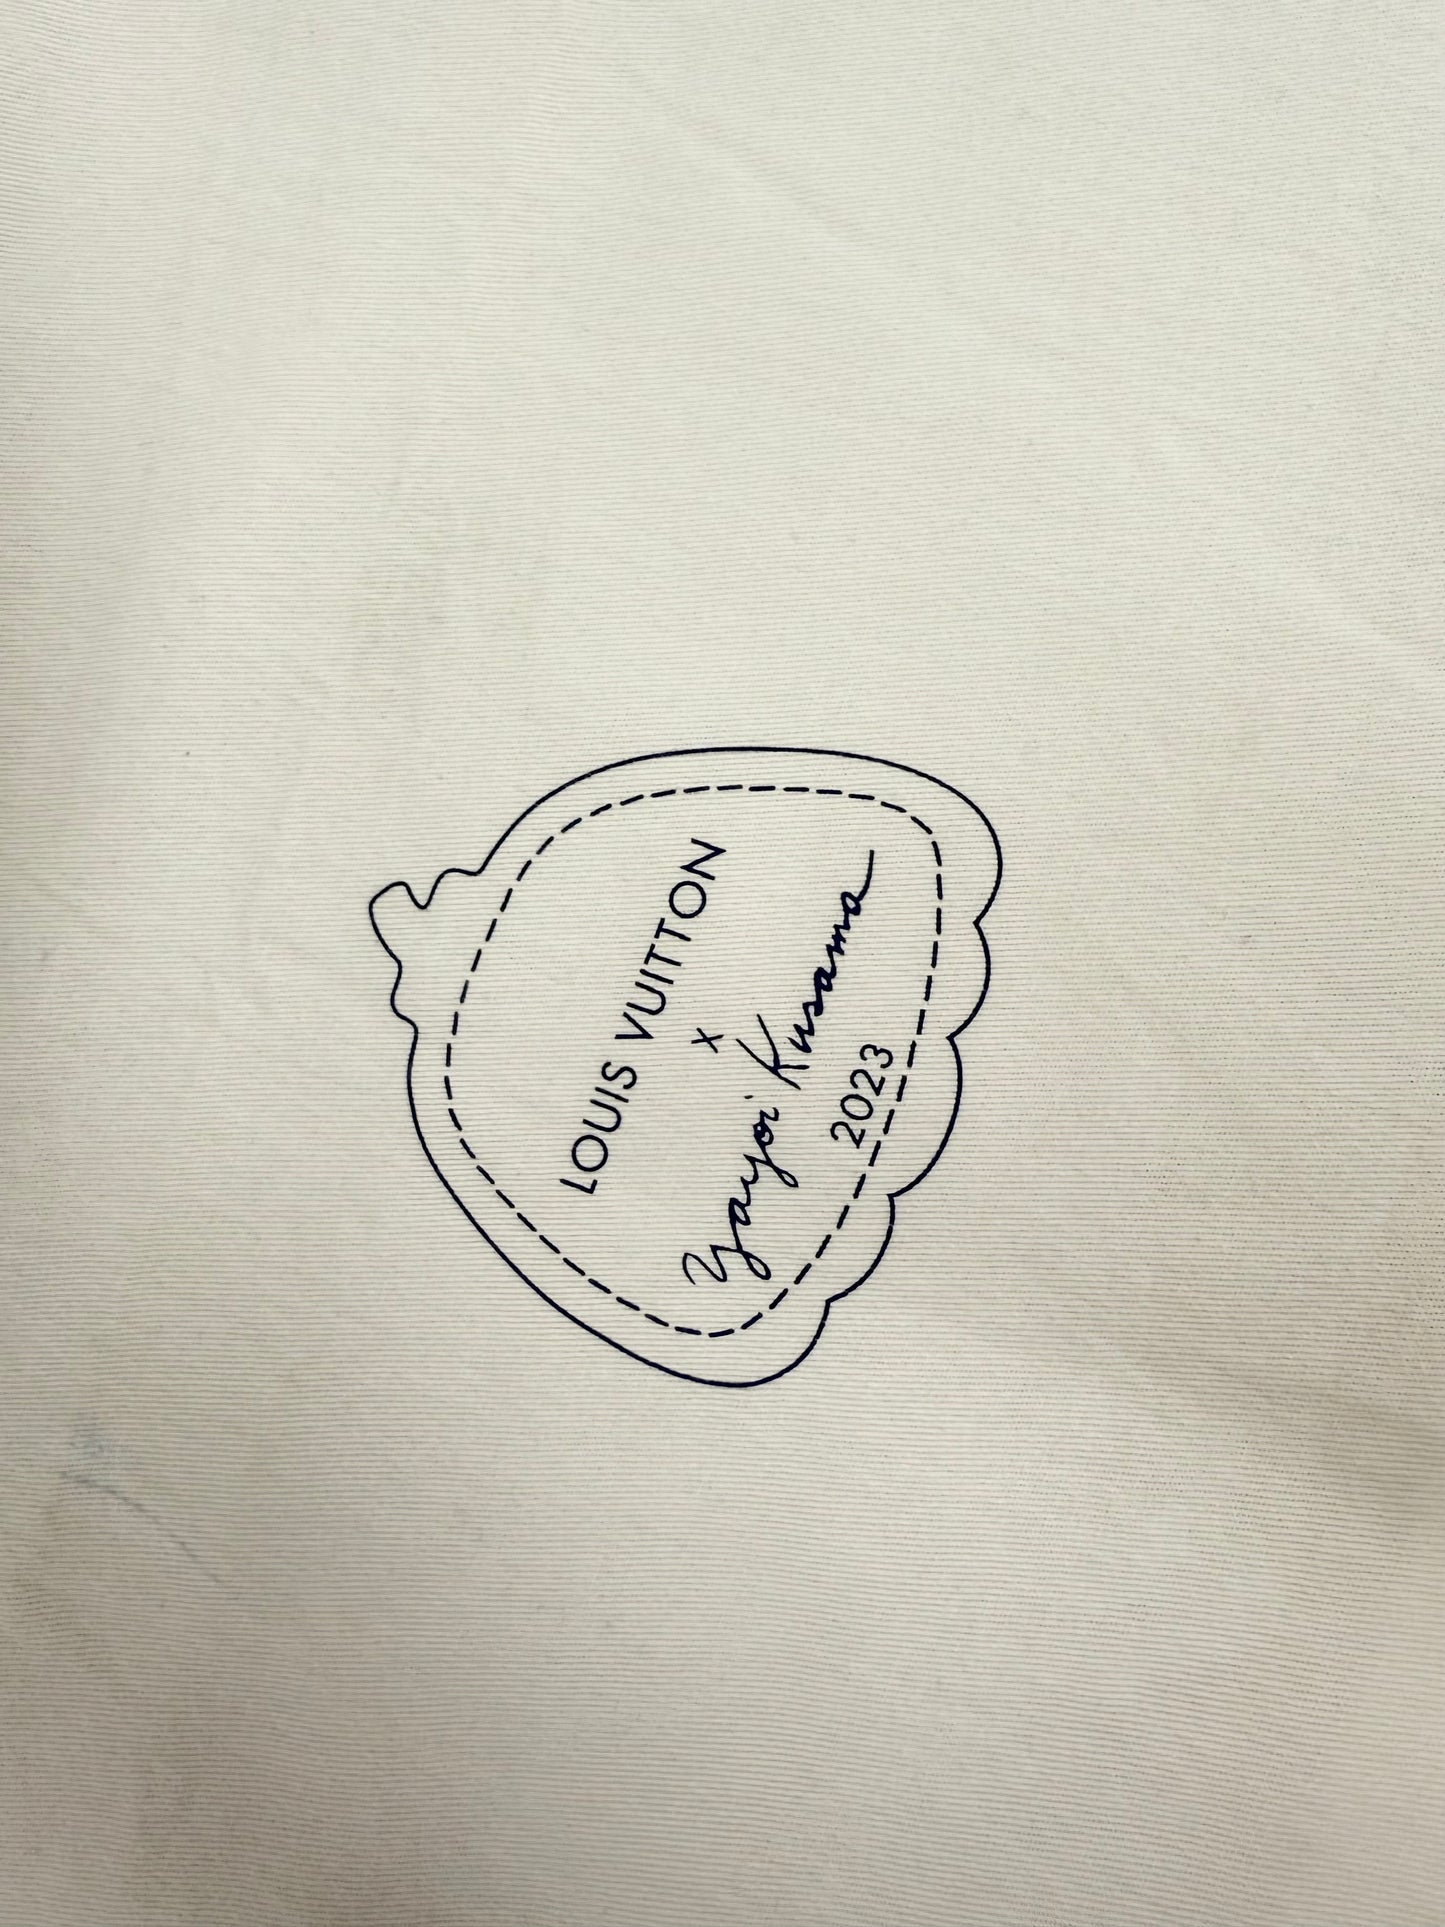 LOUIS VUITTON
x
Yayoi Kusama
2023